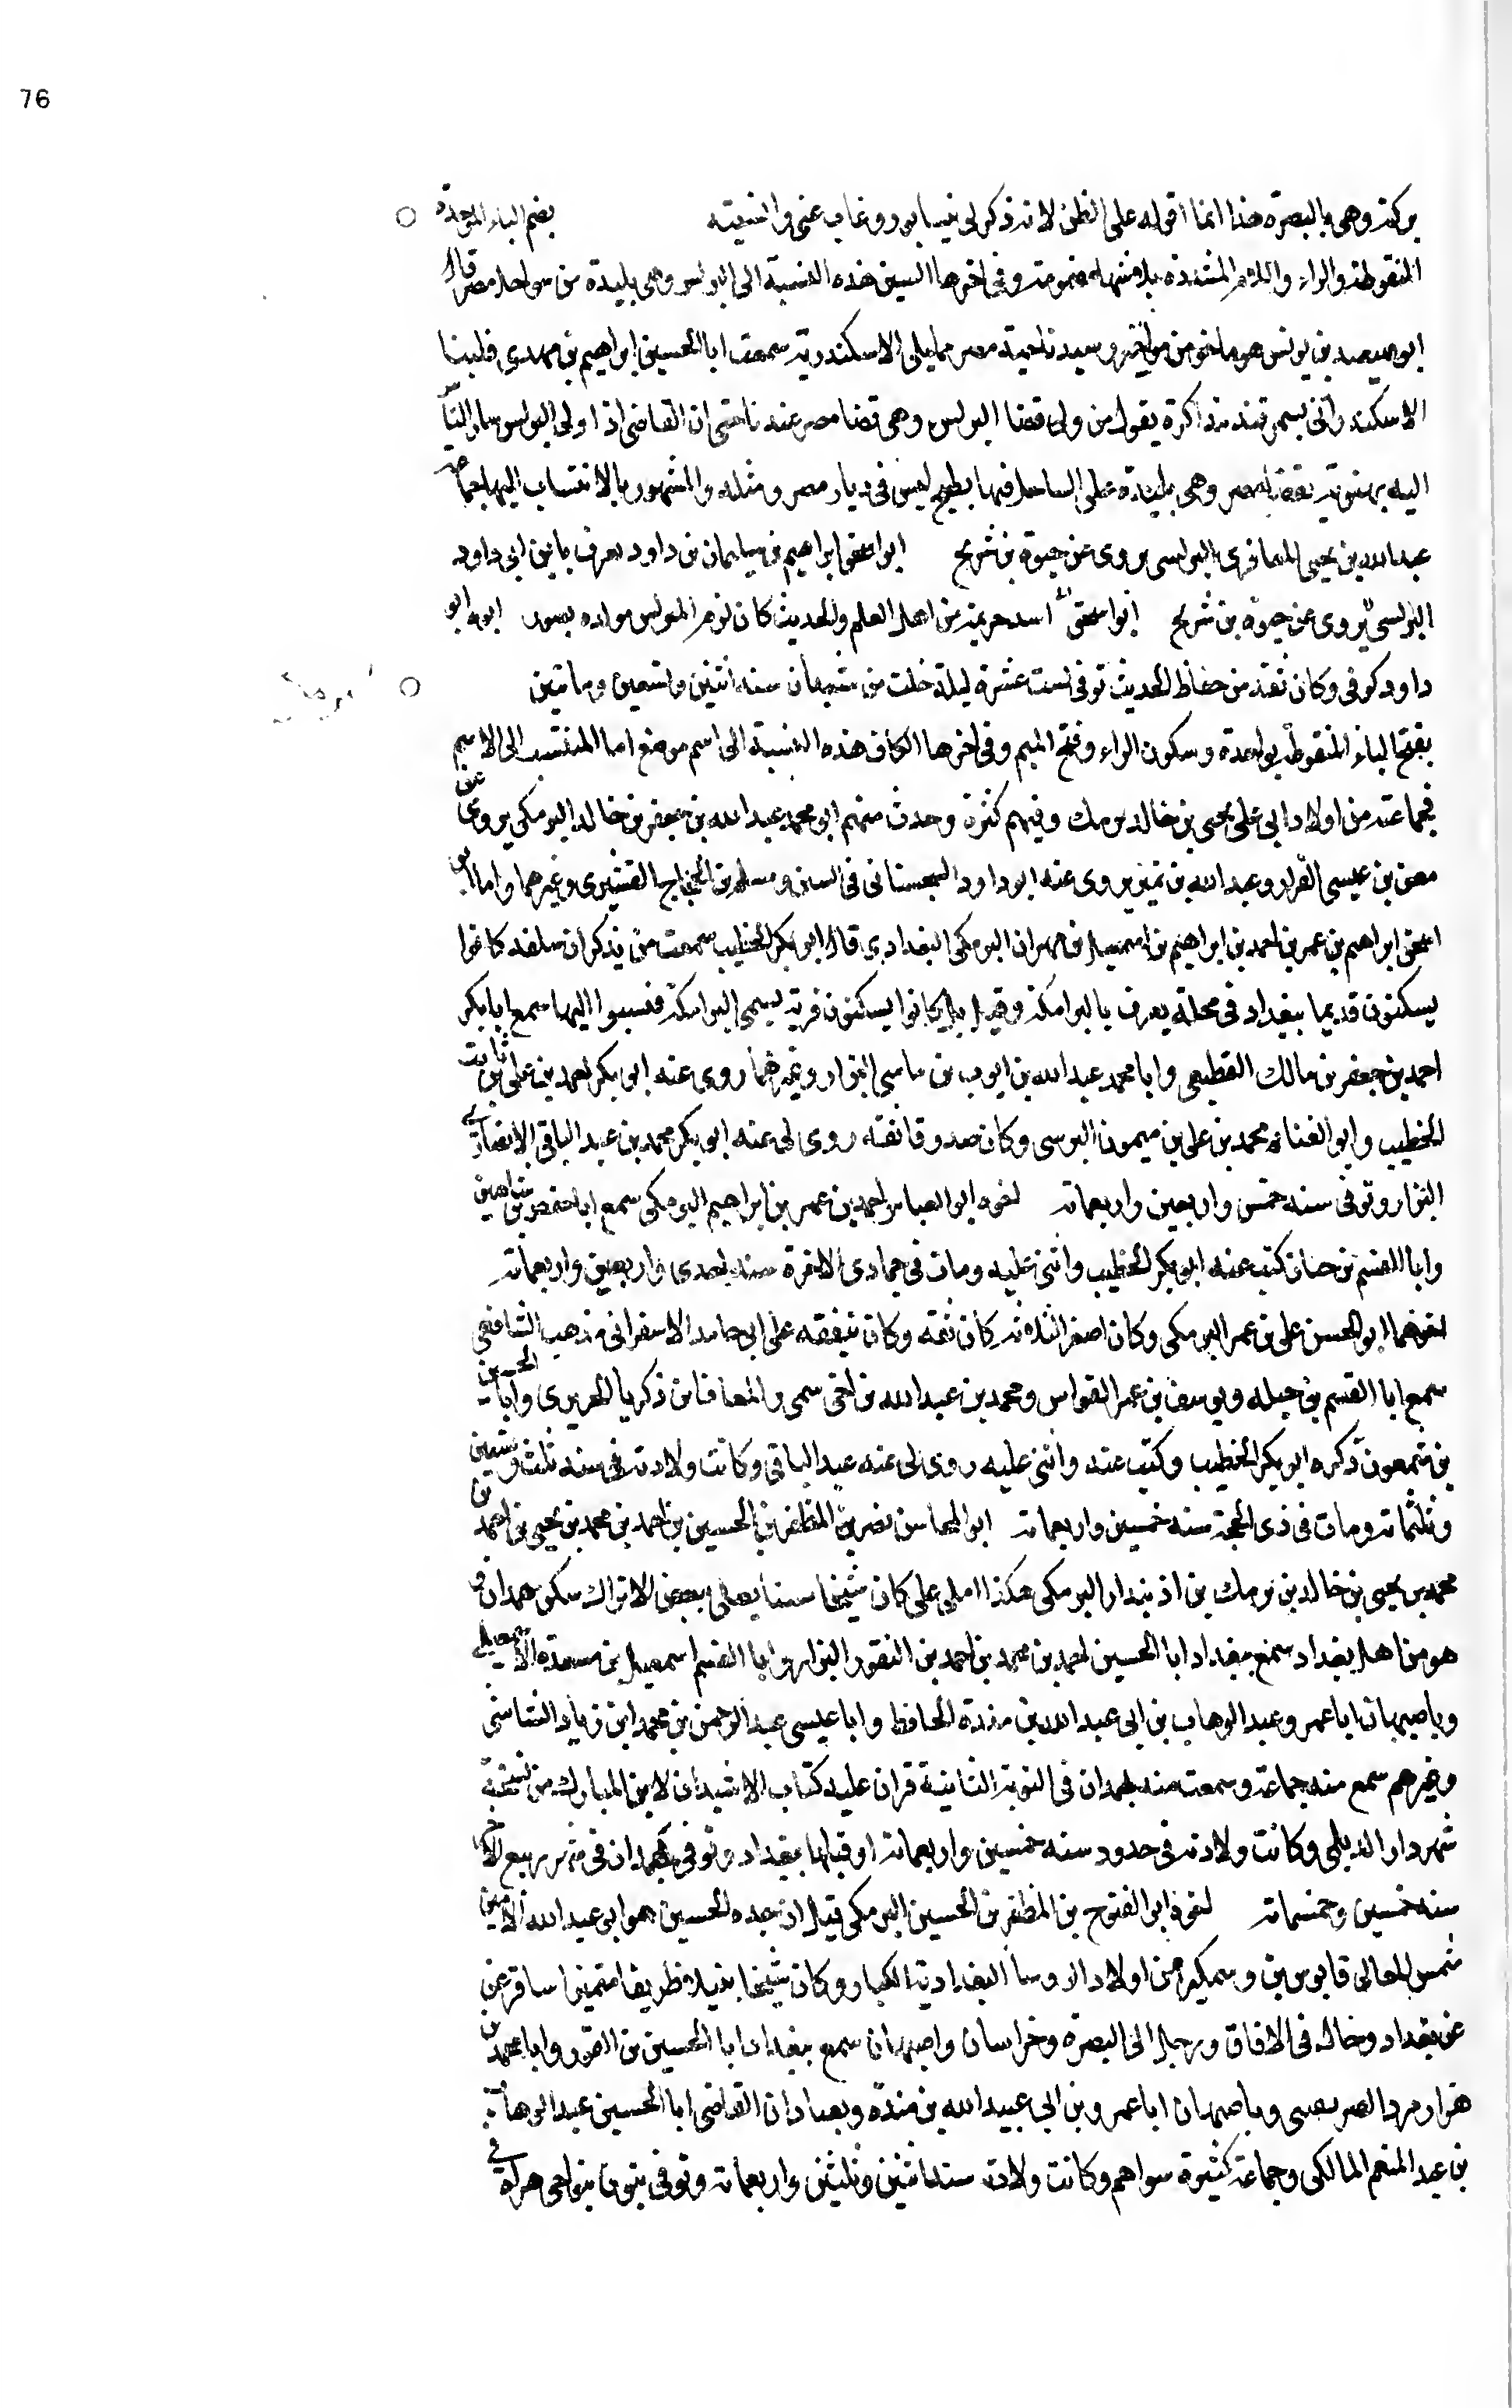 76
بركة وهى بالبصرة هذا انما اقوله على الظن لانه ذكر لى نيسابور وغاب عنى وانسيته بضم الباء الموحدة
المنقوطة والراء واللام المشددة مضمومة وفى اخرها السين هذه النسبة الى البرلس وهى بليدة من سواحل مصر قال
ابو سعيد بن يونس هو ماخو من مواخير رسيد ناحية مصر مما يلى الاسكندرية سمعت ابا الحسين ابراهيم بن مهدى بن قلينا
الاسكندرانى بسمرقند مذاكرة يقول من ولى قضا البرلس وهى قضا مصر عند نا حتى ان القاضى اذا ولى البرلس سار الناس
اليه يهنونه بقضا مصر وهى بليدة على الساحل فيها بطيخ ليس فى ديار مصر ومثله والمشهور بالانتساب اليها جماعة
عبد الله بن يحيى المعافرى البرلسى يروى عن حيوة بن شريح ابو اسحق ابراهيم بن سليمان بن داود يعرف بابن ابى داود
البرلسى يروى عن حيوة بن شريح ابو اسحق اسد خزيمة من اهل العلم والحديث كان لزم البرلس مولده بصور ابوه ابو
داود كوفى وكان ثقة من حفاظ الحديث توفى لست عشرة ليلة خلت من شعبان سنة اثنين وتسعين ومايتين
بفتح الباء المنقوطة بواحدة وسكون الراء وفتح الميم وفى اخرها الكاف هذه النسبة الى اسم وموضع اما المنتسب الى الاسم
فجماعة من اولاد ابى على يحيى بن خالد برمك وفيهم كثرة وحدث منهم ابو محمد عبد الله بن جعفر بن خالد البرمكى يروى عن
معن بن عيسى القزاز وعبد الله بن نمير يروى عنه ابو داود السجستانى فى السنن ومسلم بن الحجاج القشيرى وغيرهما واما ابو
اسحق ابراهيم بن عمر بن احمد بن ابراهيم بن اسمعيل بن مهران البرمكى البغدادى قال ابو بكر الخطيب سمعت من يذكر ان سلفه كانوا
يسكنون قديما ببغداد فى محلة يعرف بالبرامكة وقيل بل كانوا يسكنون قرية يسمى البرامكة فنسبوا اليها سمع ابا بكر
احمد بن جعفر بن مالك القطيعى وابا محمد عبد الله بن ايوب بن ماسى البزاز وغيرهما روى عنه ابو بكر احمد بن على بن ثابت
الخطيب وابو الغنايم محمد بن على بن ميمون النرسى وكان صدوقا ثقة روى لى عنه ابو بكر محمد بن عبد الباقى الانصارى
البزاز وتوفى سنة خمس واربعين واربعماية اخوه ابو العباس احمد بن عمر بن ابراهيم البرمكى سمع ابا حفص بن شاهين
وابا القسم بن حبان كتب عنه ابو بكر الخطيب واثنى عليه ومات فى جمادى الاخرة سنة احدى واربعين واربعماية
اخوهما ابو الحسن على بن عمر البرمكى وكان اصغر الثلاثة كان ثقة وكان تفقه على ابى حامد الاسفرانى مذهب الشافعى
سمع ابا القسم بن حبابه ويوسف بن عمر القواس ومحمد بن عبد الله بن اخى سمى والمعافا بن زكريا الجريرى وابا الحسين
بن شمعون ذكره ابو بكر الخطيب وكتب عنه واثنى عليه روى لى عنه عبد الباقى وكانت ولادته فى سنة ثلث وسبعين
وثلثماية ومات فى ذى الحجة سنة خمسين واربعماية ابو المحاسن نصر بن المظفر بن الحسين بن احمد بن محمد بن يحيى بن احمد بن
محمد بن يحيى بن خالد بن برمك بن اذ بندار البرمكى هكذا املى على كان شيخا مسنا يصلى ببعض الاتراك سكن همدان و
هو من اهل بغداد سمع ببغداد ابا الحسين احمد بن محمد بن احمد بن النقور البزاز وابا القسم اسمعيل بن مسعدة الاسمعيلى
وباصبهان ابا عمرو عبد الوهاب بن ابى عبد الله بن مندة الحافظ وابا عيسى عبد الرحمن بن محمد ابن زياد
وغيرهم سمع منه جماعة وسمعت منه بهمدان فى النوبة الثانية قران عليه كتاب الاستيذان لابن المبارك من نسخة
شهردار الديلمى وكانت ولادته فى حدود سنة خمسين واربعماية اوقبلها ببغداد وتوفى بهمدان فى شهر ربيع الاخر
سنة خمسين وخمسماية اخوه ابو الفتوح بن المظفر بن الحسين البرمكى قيل ان جده الحسين هو ابو عبد الله الامين
شمس المعالى قابوس بن وسمكير من اولاد الروسا البغدادية الكبار وكان شيخا نبيلا ظريفا متميزا سافر عن
عن بغداد وجال فى الافاق ورحل الى البصرة وخراسان واصبهان سمع ببغداد ابا الحسين بن النقور وابا محمد بن
هزارمرد الصريفينى وباصبهان ابا عمرو بن ابى عبيد الله بن مندة وبعبادان القاضى ابا الحسين عبد الوهاب
بن عبد المنعم المالكى وجماعة كثيرة سواهم وكانت ولادته سنة اثنين وثلثين واربعماية وتوفى بنواحى هراة فى